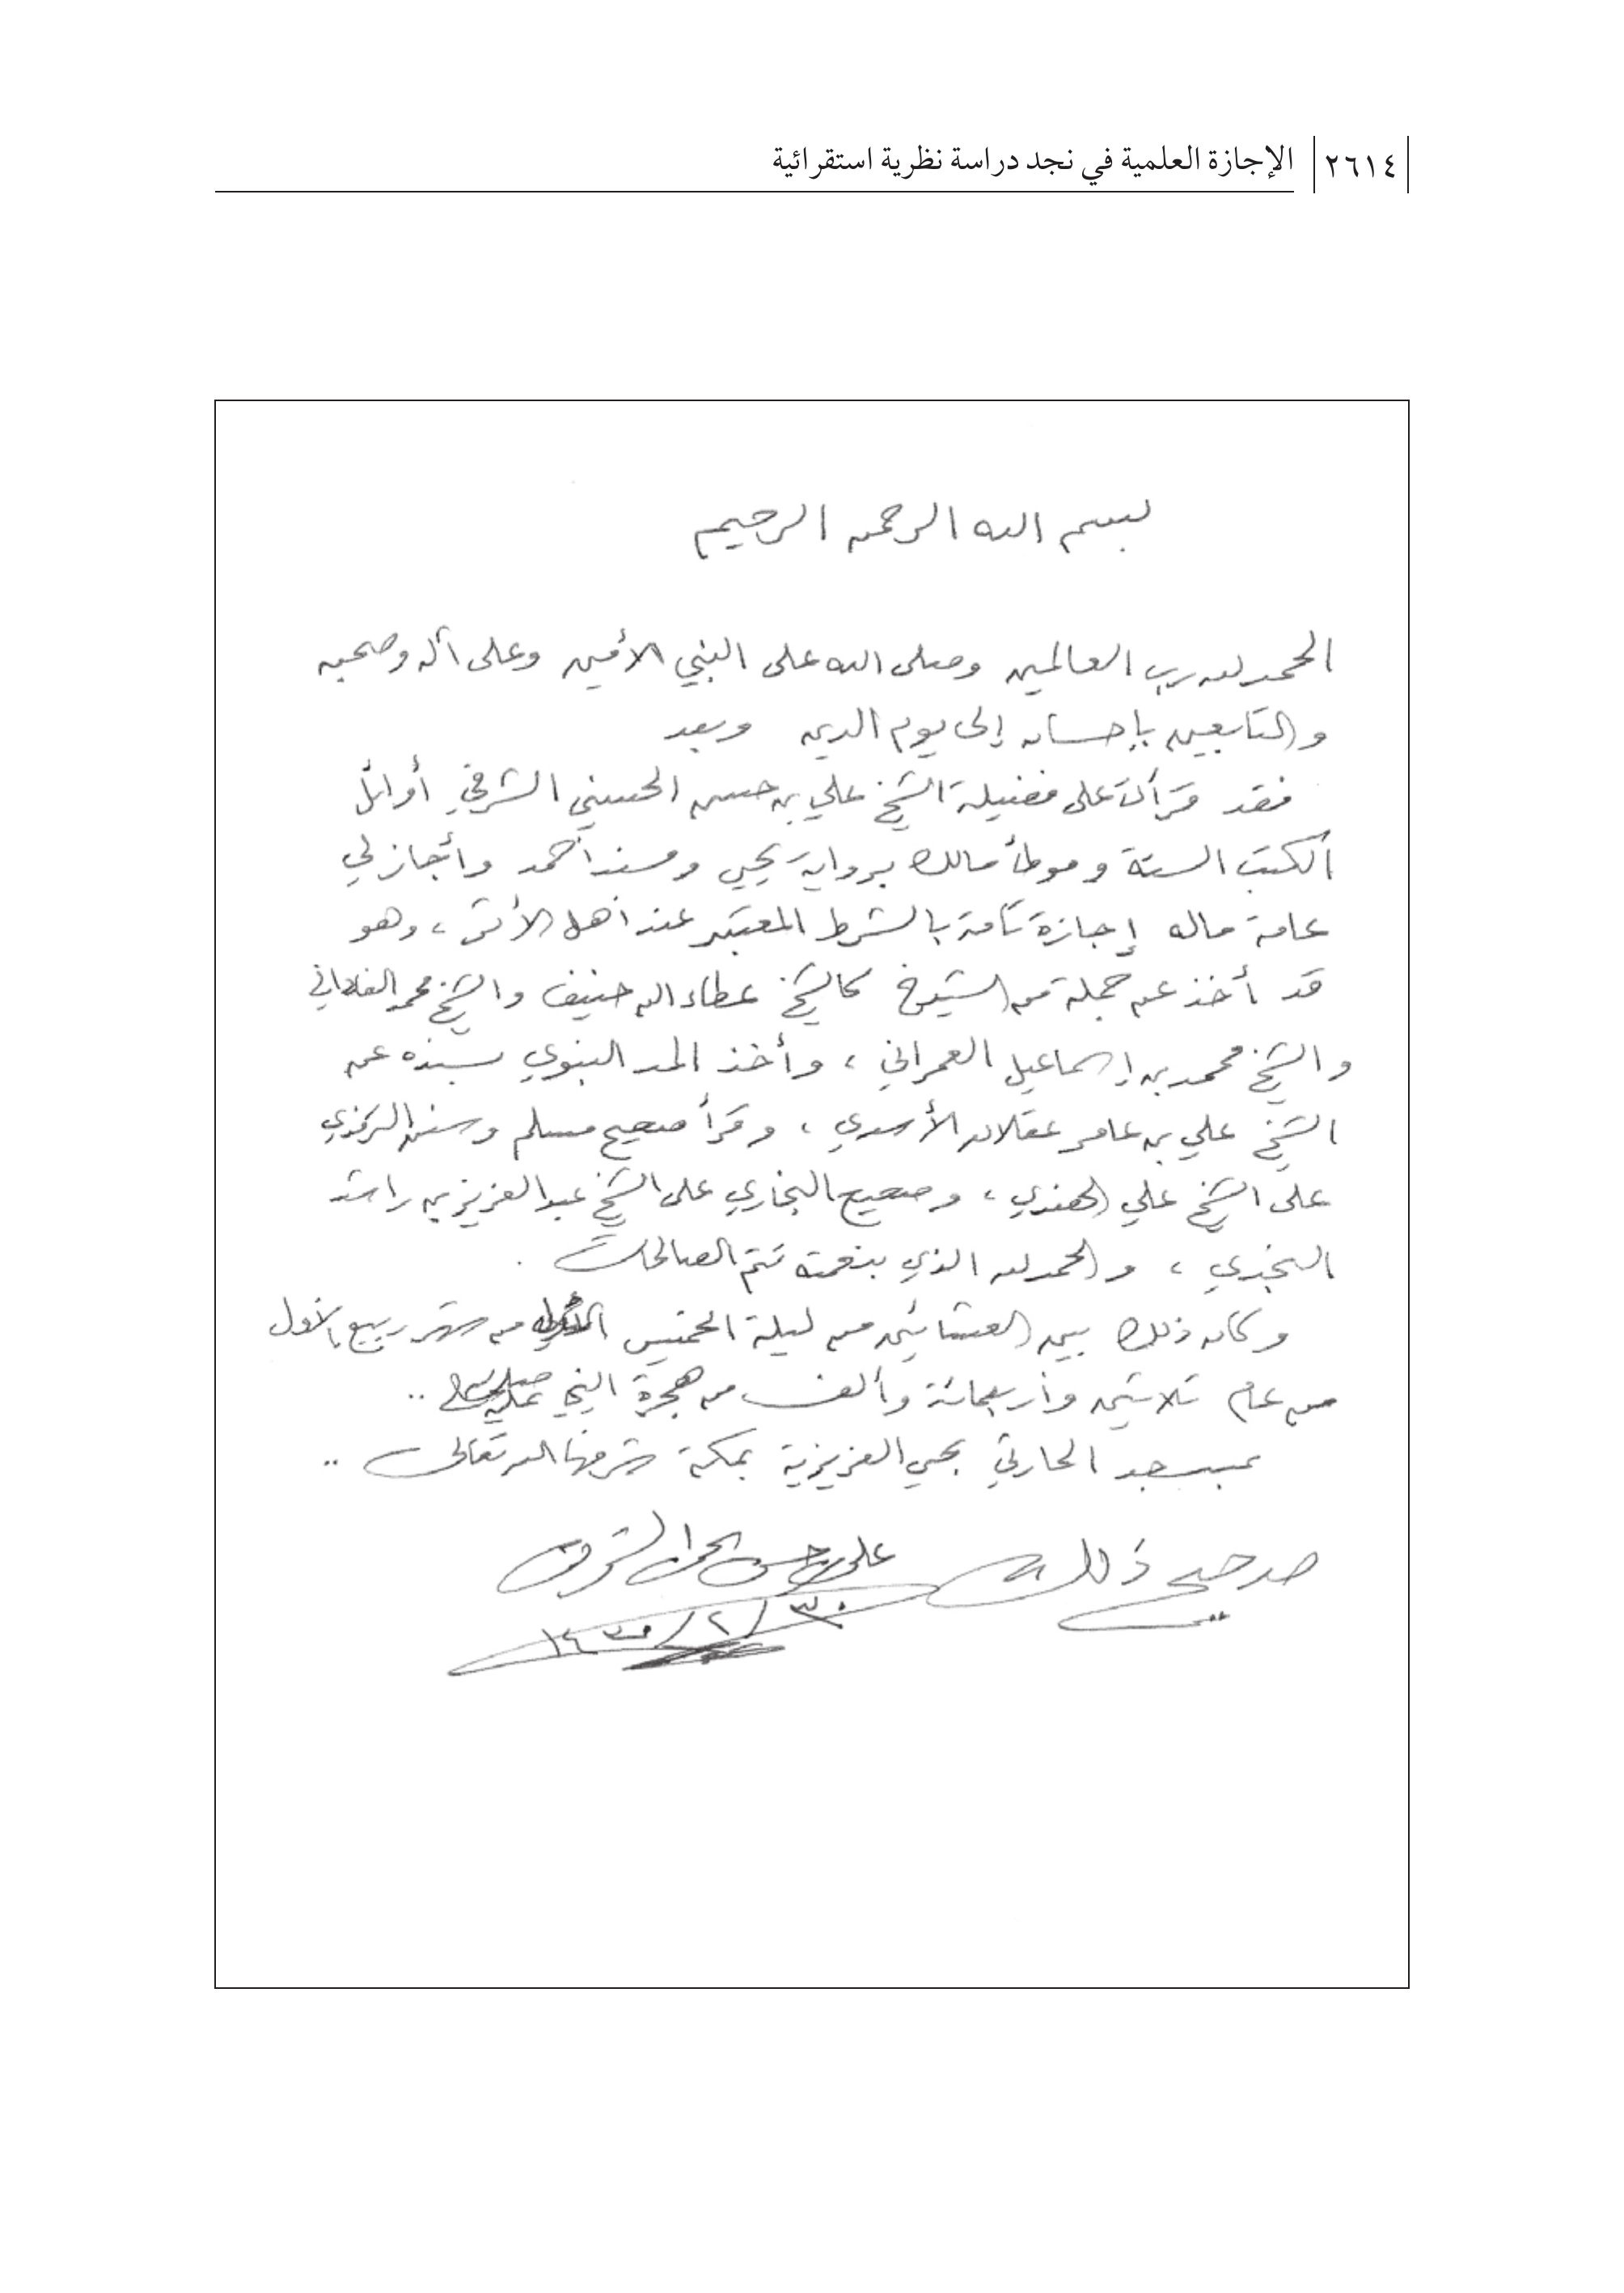 ٢٦١٤ الإجازة العلمية في نجد دراسة نظرية استقرائية
بسم الله الرحمن الرحيم
الحمد لله رب العالمين وصلى الله على النبي الأمين وعلى آله وصحبه
والتابعين بإحسان إلى يوم الدين وبعد
فقد قرأت على فضيلة الشيخ علي بن حسن الحسيني الشرفي أوائل
الكتب الستة وموطأ مالك برواية يحيى ومسند أحمد وأجاز لي
عامة ماله إجازة تامة بالشرط المعتبر عند أهل الأثر، وهو
قد أخذ عن جملة من الشيوخ كالشيخ عطاء الله حنيف والشيخ محمد الفاداني
والشيخ محمد بن إسماعيل العمراني، وأخذ المد النبوي بسنده عن
الشيخ علي بن عامر عقلان الأسدي، وقرأ صحيح مسلم وسنن الترمذي
على الشيخ علي الهندي، وصحيح البخاري على الشيخ عبد العزيز بن راشد
النجدي، والحمد لله الذي بنعمته تتم الصالحات.
وكان ذلك بين العشائين من ليلة الخميس من شهر ربيع الأول
من عام ثلاثين وأربعمائة وألف من هجرة النبي ..
بمسجد الحارثي بحي العزيزية بمكة شرفها الله تعالى ..
صحيح ذلك
علي بن حسن الشرفي
٣٠/٢/١٤٣٠